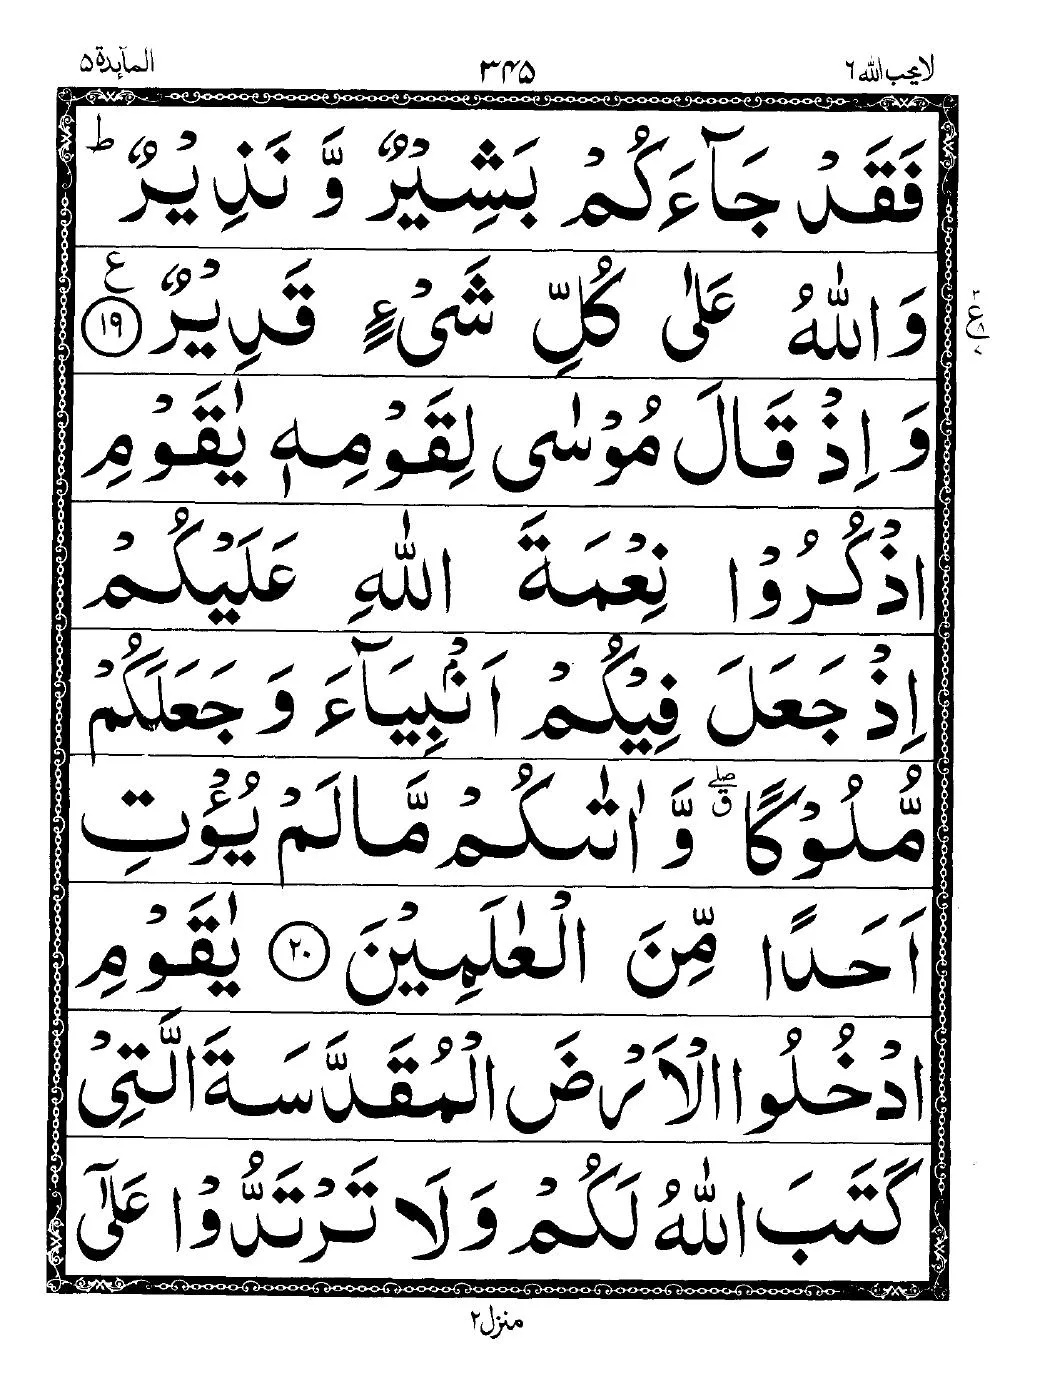 لا یحب اللہ ۶
۳۴۵
المآئدة ۵
فَقَدْ جَآءَكُمْ بَشِيْرٌ وَّ نَذِيْرٌ ؕ
وَاللّٰهُ عَلٰى كُلِّ شَىْءٍ قَدِيْرٌ ۧ ﴿۱۹﴾
وَ اِذْ قَالَ مُوْسٰى لِقَوْمِهٖ يٰقَوْمِ
اذْكُرُوْا نِعْمَةَ اللّٰهِ عَلَيْكُمْ
اِذْ جَعَلَ فِيْكُمْ اَنْۢبِيَآءَ وَ جَعَلَكُمْ
مُّلُوْكًا ۖق وَّ اٰتٰىكُمْ مَّا لَمْ يُؤْتِ
اَحَدًا مِّنَ الْعٰلَمِيْنَ ﴿۲۰﴾ يٰقَوْمِ
ادْخُلُوا الْاَرْضَ الْمُقَدَّسَةَ الَّتِىْ
كَتَبَ اللّٰهُ لَكُمْ وَلَا تَرْتَدُّوْا عَلٰٓى
منزل ۲